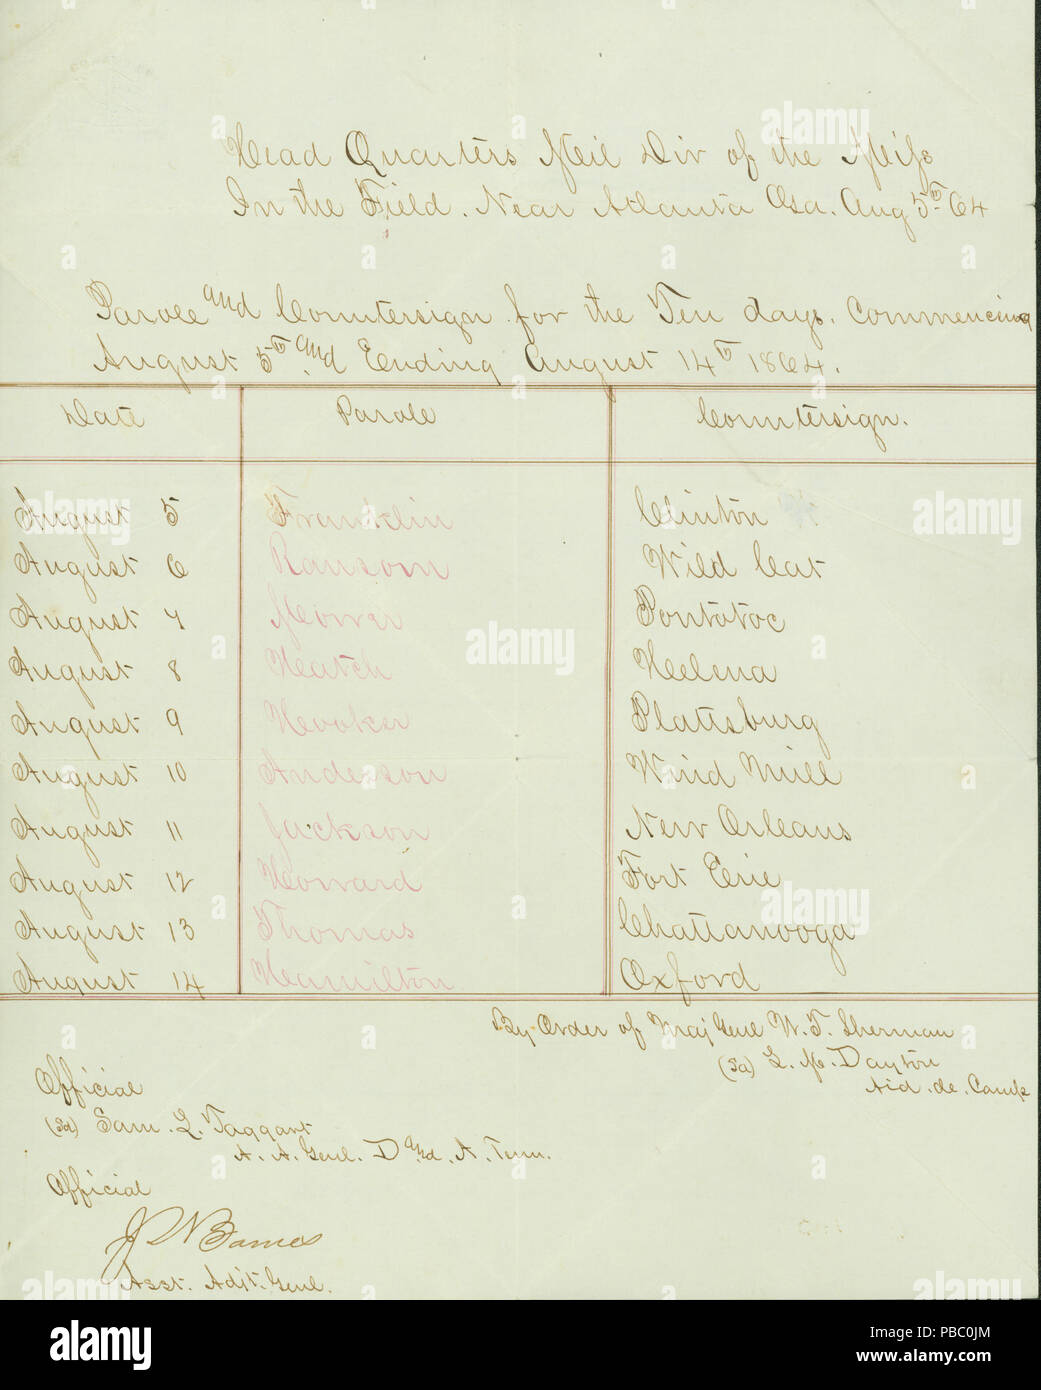 Head Quarters Mil Div of the Miss
In the Field. Near Atlanta Ga. Aug 5th 64
Parole and Countersign for the Ten days. Commencing
August 5th and Ending August 14th 1864.
Date Parole Countersign.
August 5 Franklin Clinton
August 6 Ransom Wild Cat
August 7 Mower Pontotoc
August 8 Hatch Helena
August 9 Hooker Plattsburg
August 10 Anderson Wind Mill
August 11 Jackson New Orleans
August 12 Howard Fort Erie
August 13 Thomas Chattanooga
August 14 Hamilton Oxford
By Order of Maj Genl W. T. Sherman
(Sd) L. M. Dayton
Aid. de. Camp
Official
(Sd) Sam. L. Taggart
A. A. Genl. D and A. Tenn.
Official
Barnes
Asst. Adjt. Genl.
alamy
Image ID: PBC0JM
www.alamy.com